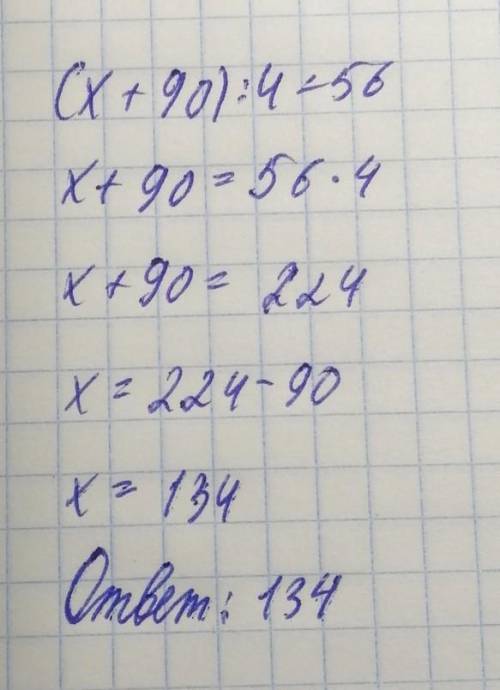 (x + 90) : 4 = 56
x + 90 = 56 · 4
x + 90 = 224
x = 224 - 90
x = 134
Ответ: 134